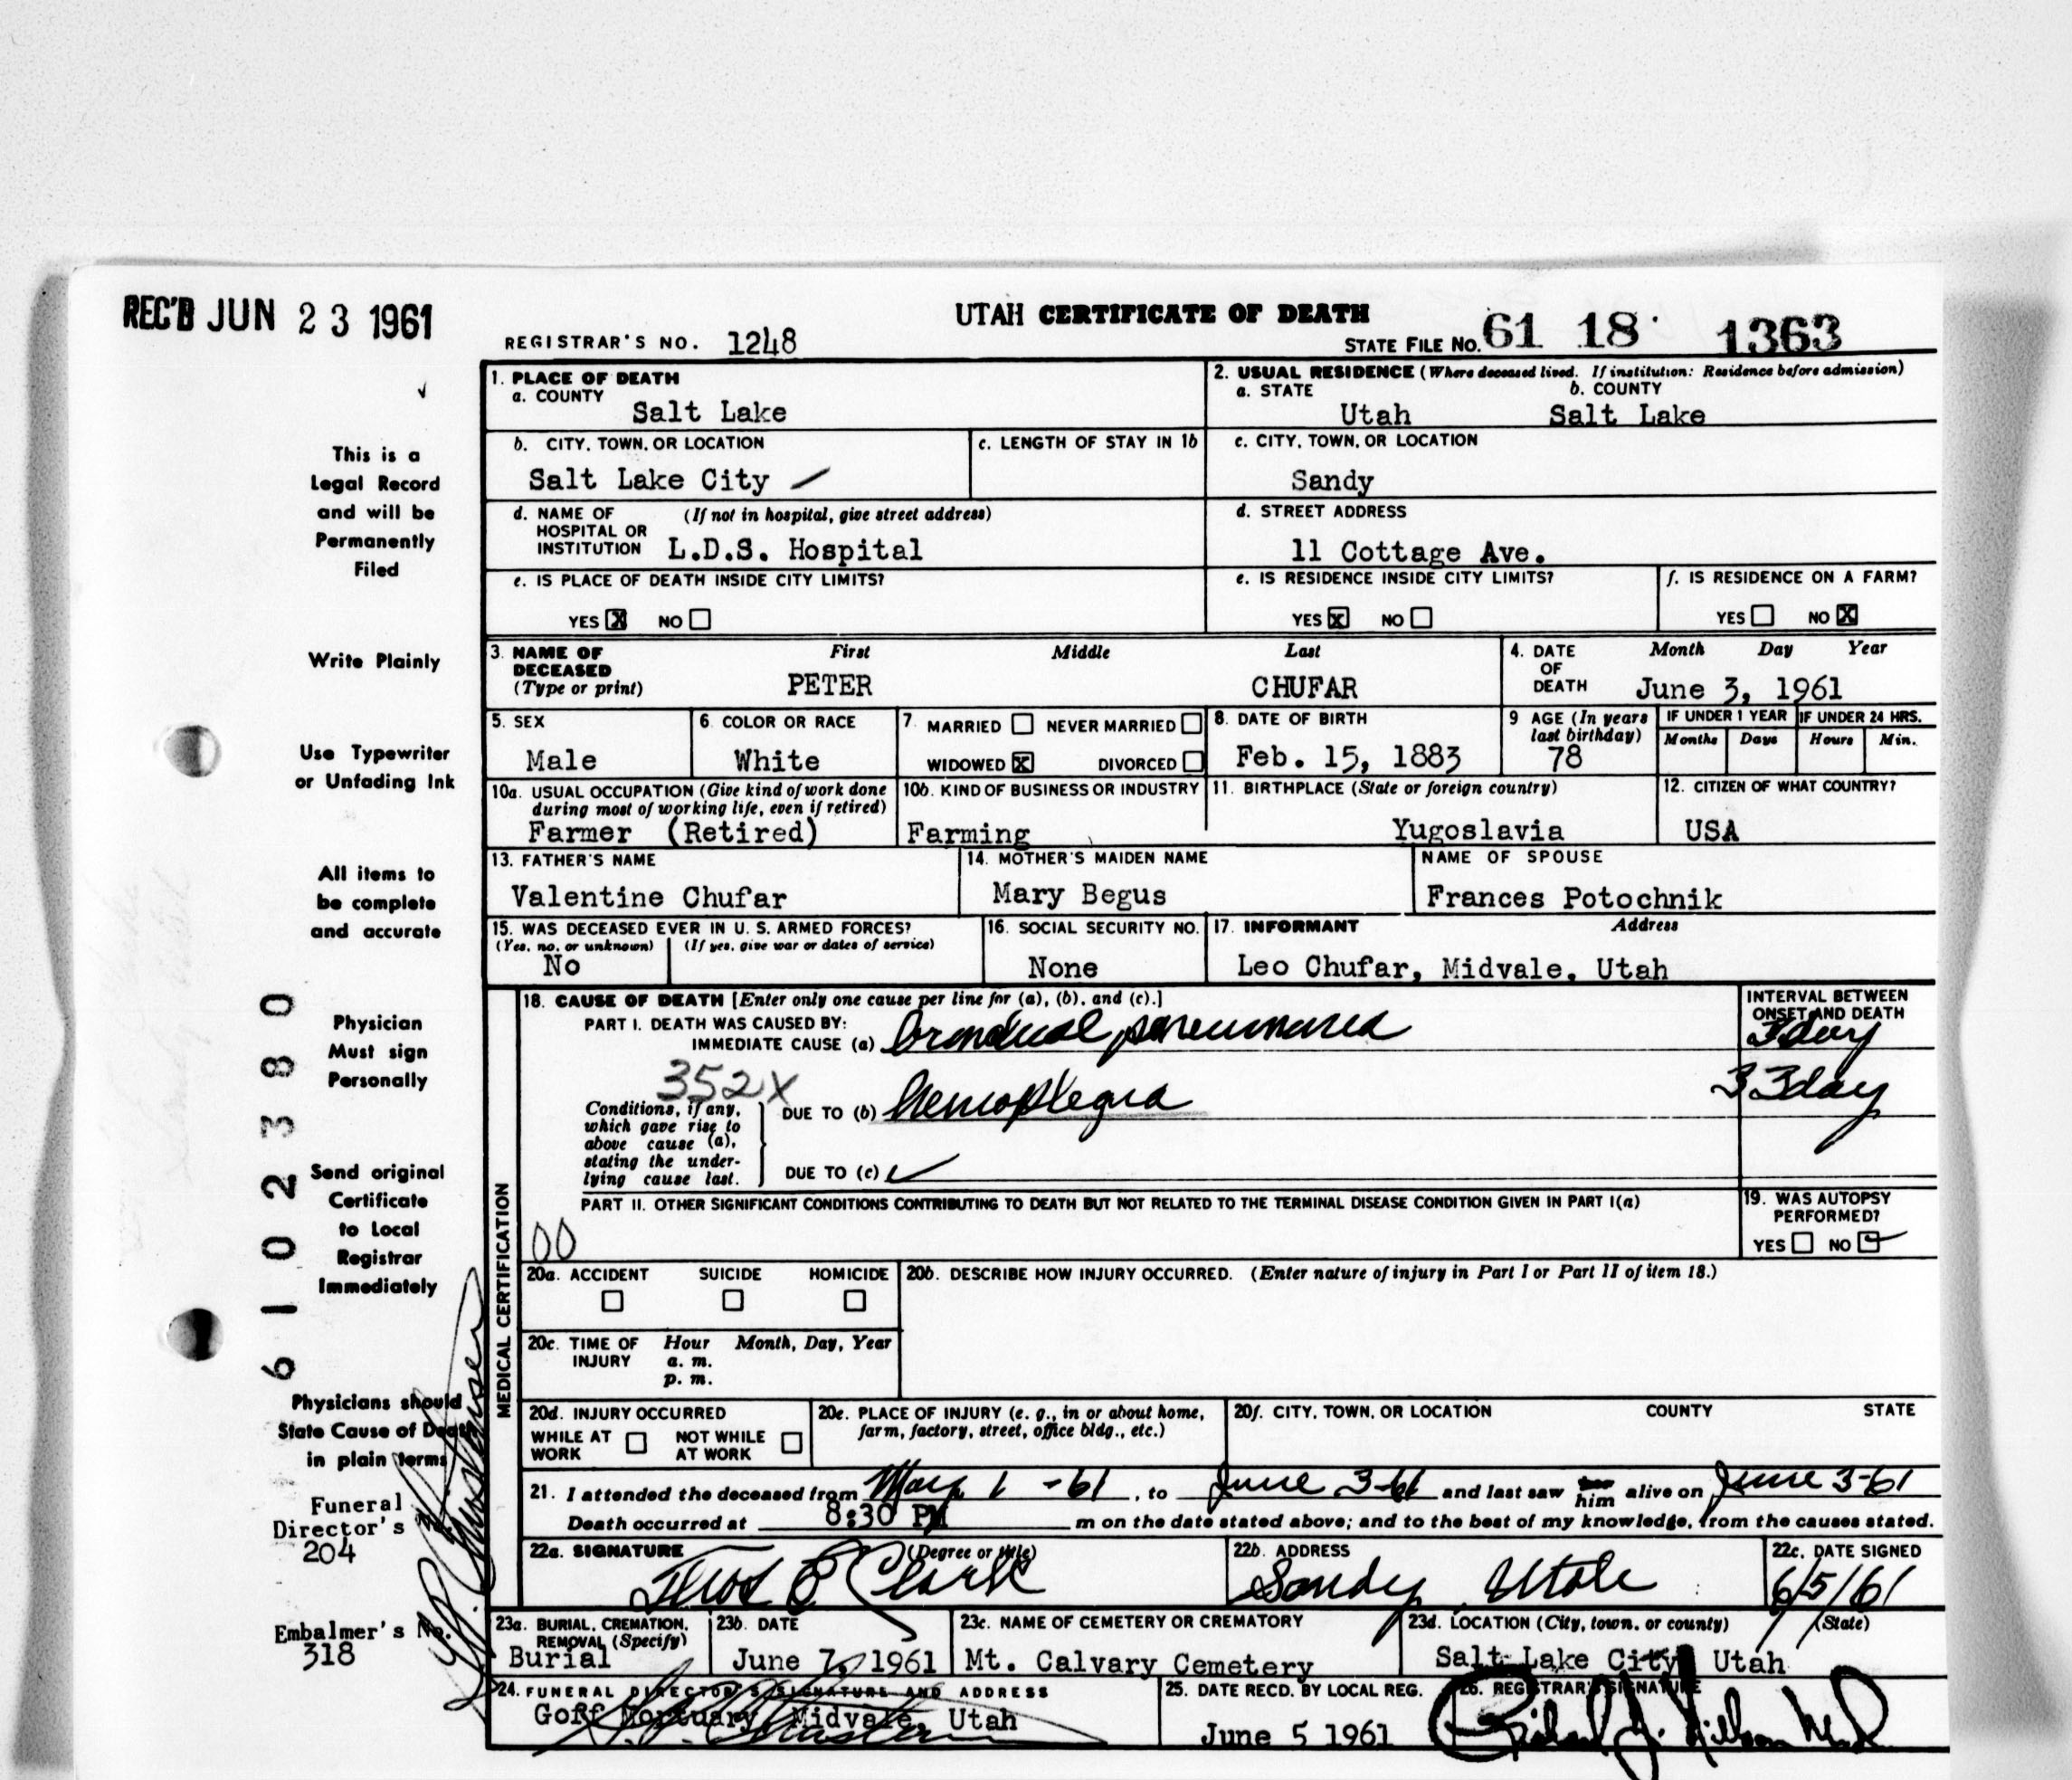 REC'D JUN 23 1961
UTAH CERTIFICATE OF DEATH
REGISTRAR'S NO. 1248
STATE FILE No. 61 18 1363
1. PLACE OF DEATH
a. COUNTY
Salt Lake
2. USUAL RESIDENCE (Where deceased lived. If institution: Residence before admission)
a. STATE b. COUNTY
Utah Salt Lake
b. CITY, TOWN, OR LOCATION
Salt Lake City
c. LENGTH OF STAY IN 1b
c. CITY, TOWN, OR LOCATION
Sandy
d. NAME OF (If not in hospital, give street address)
HOSPITAL OR
INSTITUTION L.D.S. Hospital
d. STREET ADDRESS
11 Cottage Ave.
e. IS PLACE OF DEATH INSIDE CITY LIMITS?
YES X NO
e. IS RESIDENCE INSIDE CITY LIMITS?
YES X NO
f. IS RESIDENCE ON A FARM?
YES NO X
3. NAME OF DECEASED (Type or print)
First Middle Last
PETER CHUFAR
4. DATE OF DEATH
Month Day Year
June 3, 1961
5. SEX
Male
6. COLOR OR RACE
White
7. MARRIED NEVER MARRIED
WIDOWED X DIVORCED
8. DATE OF BIRTH
Feb. 15, 1883
9 AGE (In years last birthday)
78
IF UNDER 1 YEAR IF UNDER 24 HRS.
Months Days Hours Min.
10a. USUAL OCCUPATION (Give kind of work done
during most of working life, even if retired)
Farmer (Retired)
10b. KIND OF BUSINESS OR INDUSTRY
Farming
11. BIRTHPLACE (State or foreign country)
Yugoslavia
12. CITIZEN OF WHAT COUNTRY?
USA
13. FATHER'S NAME
Valentine Chufar
14. MOTHER'S MAIDEN NAME
Mary Begus
NAME OF SPOUSE
Frances Potochnik
15. WAS DECEASED EVER IN U. S. ARMED FORCES?
(Yes, no, or unknown) (If yes, give war or dates of service)
No
16. SOCIAL SECURITY NO.
None
17. INFORMANT Address
Leo Chufar, Midvale, Utah
MEDICAL CERTIFICATION
18. CAUSE OF DEATH [Enter only one cause per line for (a), (b), and (c).]
PART I. DEATH WAS CAUSED BY:
IMMEDIATE CAUSE (a) bronchial pneumonia
INTERVAL BETWEEN
ONSET AND DEATH
3 day
352X
Conditions, if any,
which gave rise to
above cause (a),
stating the under-
lying cause last.
DUE TO (b) hemoplegia
33 day
DUE TO (c)
PART II. OTHER SIGNIFICANT CONDITIONS CONTRIBUTING TO DEATH BUT NOT RELATED TO THE TERMINAL DISEASE CONDITION GIVEN IN PART I(a)
00
19. WAS AUTOPSY
PERFORMED?
YES NO
20a. ACCIDENT SUICIDE HOMICIDE
20b. DESCRIBE HOW INJURY OCCURRED. (Enter nature of injury in Part I or Part II of item 18.)
20c. TIME OF INJURY
Hour Month, Day, Year
a. m.
p. m.
20d. INJURY OCCURRED
WHILE AT WORK NOT WHILE AT WORK
20e. PLACE OF INJURY (e. g., in or about home,
farm, factory, street, office bldg., etc.)
20f. CITY, TOWN, OR LOCATION COUNTY STATE
21. I attended the deceased from May 1 -61, to June 3-61 and last saw him alive on June 3-61
Death occurred at 8:30 PM m on the date stated above; and to the best of my knowledge, from the causes stated.
22a. SIGNATURE (Degree or title)
Thos E Clark
22b. ADDRESS
Sandy Utah
22c. DATE SIGNED
6/5/61
23a. BURIAL, CREMATION,
REMOVAL (Specify)
Burial
23b. DATE
June 7, 1961
23c. NAME OF CEMETERY OR CREMATORY
Mt. Calvary Cemetery
23d. LOCATION (City, town, or county) (State)
Salt Lake City Utah
24. FUNERAL DIRECTOR'S SIGNATURE AND ADDRESS
Goff Mortuary, Midvale, Utah
25. DATE RECD. BY LOCAL REG.
June 5 1961
26. REGISTRAR'S SIGNATURE
This is a
Legal Record
and will be
Permanently
Filed
Write Plainly
Use Typewriter
or Unfading Ink
All items to
be complete
and accurate
Physician
Must sign
Personally
Send original
Certificate
to Local
Registrar
Immediately
Physicians should
State Cause of Death
in plain terms
Funeral
Director's No.
204
Embalmer's No.
318
6102380